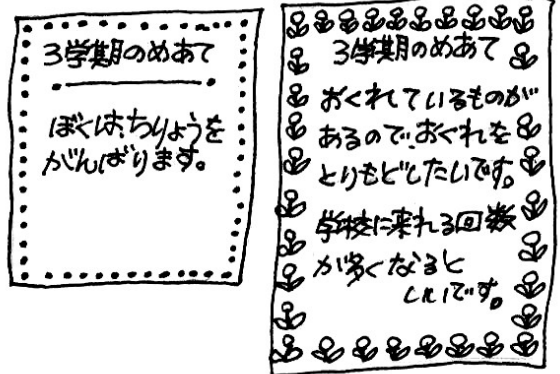 3学期のめあて
ぼくは、ちりょうを
がんばります。
3学期のめあて
おくれているものが
あるので、おくれを
とりもどしたいです。
学校に来れる回数
が多くなると
いいです。